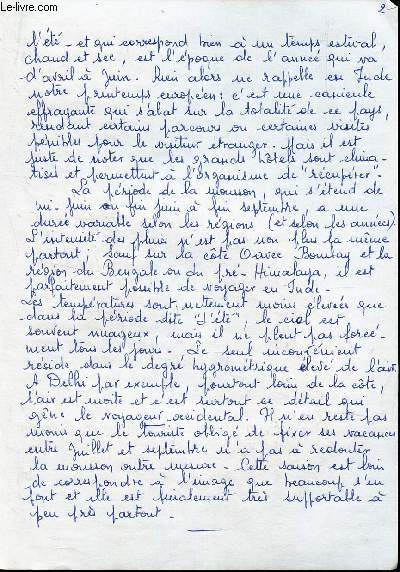 Le-livre.com
2
l'été - et qui correspond bien à un temps estival,
chaud et sec, est l'époque de l'année qui va
d'avril à Juin. Rien alors ne rappelle en Inde
notre printemps européen ; c'est une canicule
effrayante qui s'abat sur la totalité de ce pays,
rendant certains parcours ou certaines visites
pénibles pour le visiteur étranger. Mais il est
juste de noter que les grands hôtels sont clima-
tisés et permettent à l'organisme de "récupérer".
La période de la mousson, qui s'étend de
mi-Juin ou fin Juin à fin septembre, a une
durée variable selon les régions (et selon les années).
L'intensité des pluies n'est pas non plus la même
partout ; sauf sur la côte Ouest Bombay et la
région du Bengale ou du pré-Himalaya, il est
parfaitement possible de voyager en Inde -
Les températures sont nettement moins élevées que
dans la période dite "d'été", le ciel est
souvent nuageux, mais il ne pleut pas forcé-
ment tous les jours. - Le seul inconvénient
réside dans le degré hygrométrique élevé de l'air.
A Delhi par exemple, pourtant loin de la côte,
l'air est moite et c'est surtout ce détail qui
gêne le voyageur occidental. Il n'en reste pas
moins que le Touriste obligé de fixer ses vacances
entre Juillet et septembre n'a pas à redouter
la mousson outre mesure - Cette saison est loin
de correspondre à l'image que beaucoup s'en
font et elle est finalement très supportable à
peu près partout -